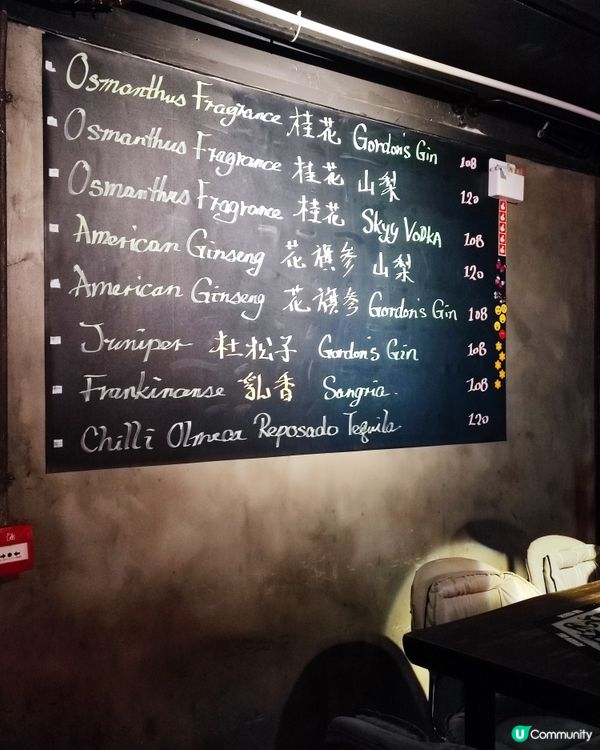 Osmanthus Fragrance 桂花 Gordon's Gin 108
Osmanthus Fragrance 桂花 山梨 120
Osmanthus Fragrance 桂花 Skyy Vodka 108
American Ginseng 花旗參 山梨 120
American Ginseng 花旗參 Gordon's Gin 108
Juniper 杜松子 Gordon's Gin 108
Frankinanse 乳香 Sangria 108
Chilli Olmeca Reposado Tequila 120
U Community